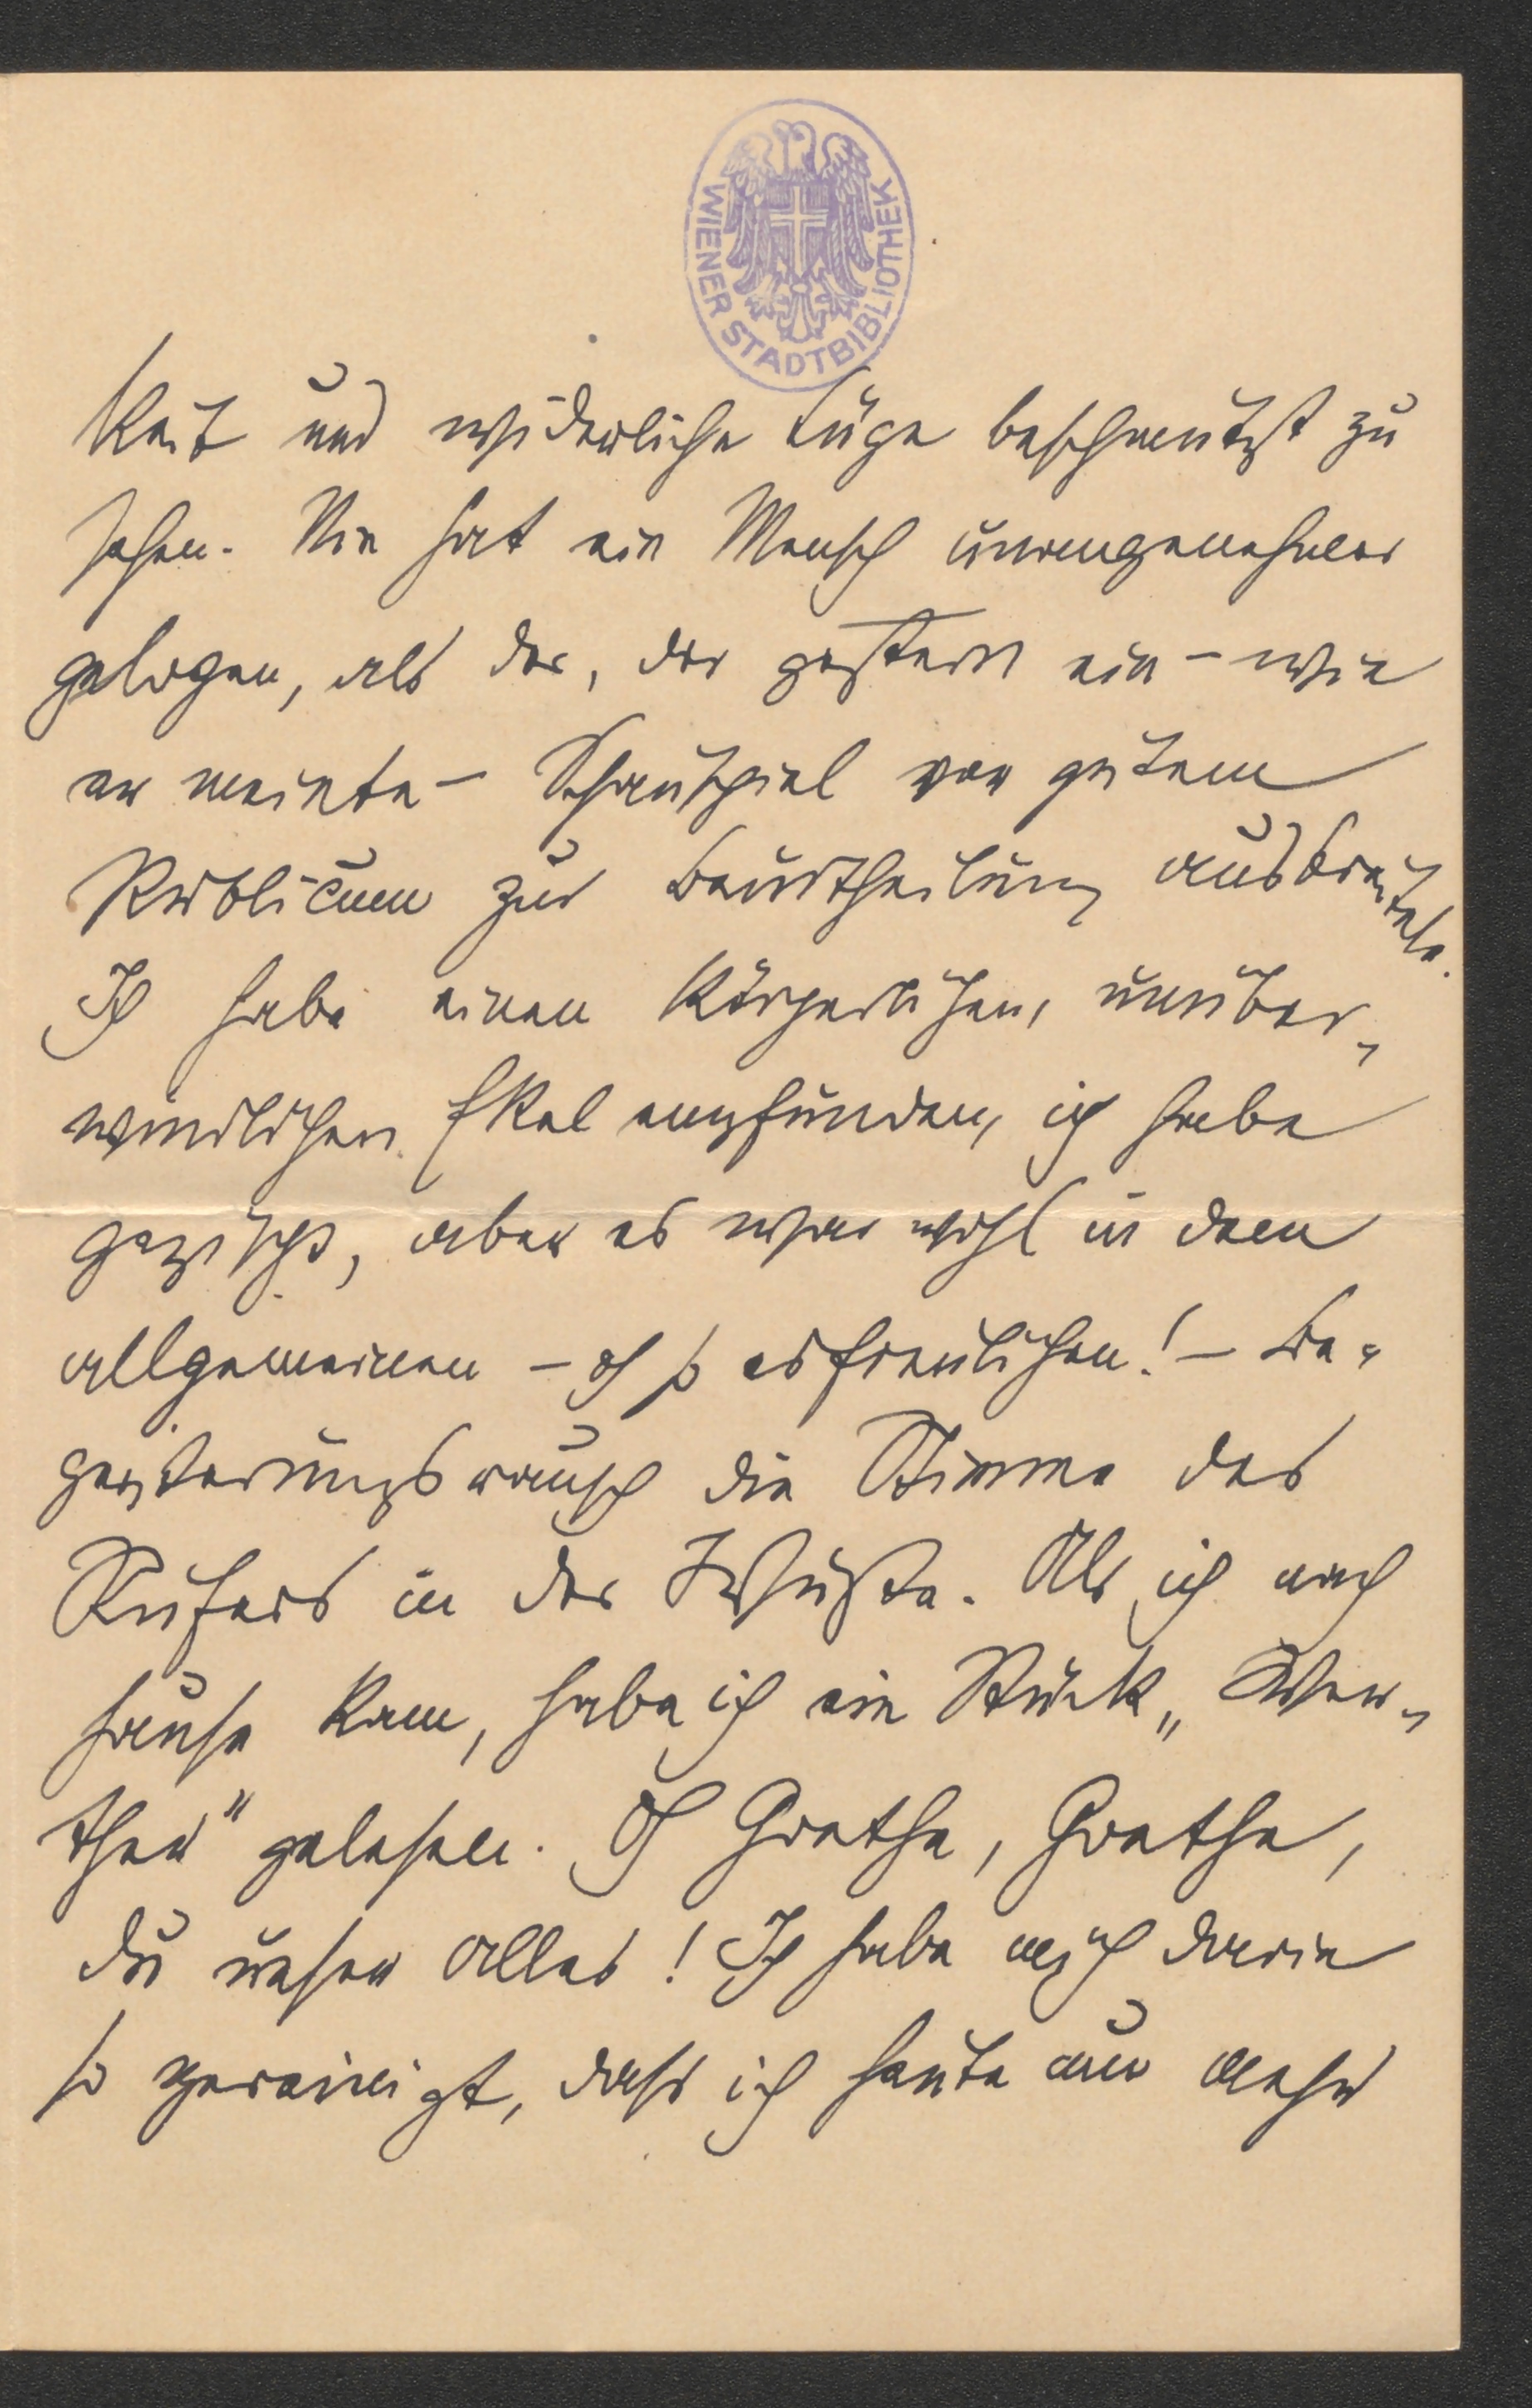 WIENER STADTBIBLIOTHEK
keit und widerliche Lüge beschmutzt zu
sehen. Nie hat ein Mensch unangenehmer
gelogen, als der, der gestern ein – wie
er meinte – Schauspiel vor gutem
Publicum zur Beurtheilung ausbreitete.
Ich habe einen körperlichen, unüber„
windlichen Ekel empfunden, ich habe
gezischt, aber es war wohl in dem
allgemeinen – oh so erfreulichen! – Be„
geisterungsrausch die Stimme des
Rufers in der Wüste. Als ich nach
hause kam, habe ich ein Stück „Wer„
ther" gelesen. Oh Goethe, Goethe,
du unser Alles! Ich habe mich darin
so gereinigt, dass ich heute nur mehr